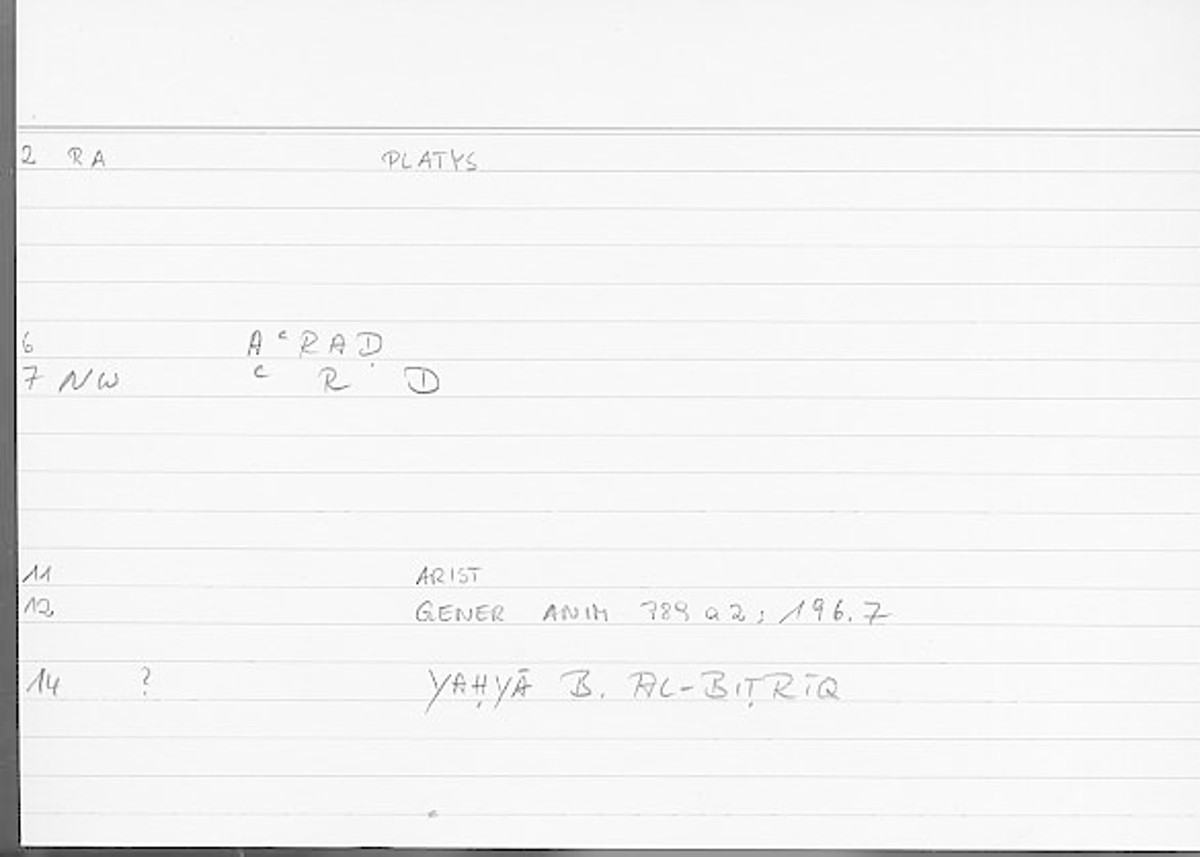 2 RA PLATYS
6 AᶜRAḌ
7 NW ᶜ R Ḍ
11 ARIST
12 GENER ANIM 789 a 2; 196.7
14 ? YAḤYĀ B. AL-BIṬRĪQ